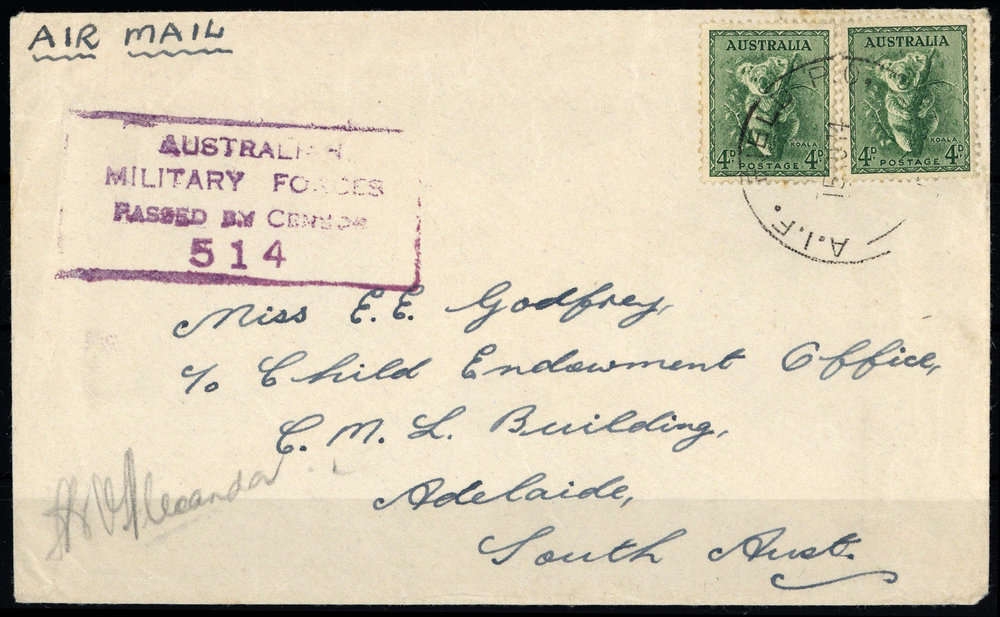 AIR MAIL
AUSTRALIA
4D
KOALA
4D
POSTAGE
AUSTRALIA
4D
KOALA
4D
POSTAGE
A.I.F. FIELD P.O.
AUSTRALIAN
MILITARY FORCES
PASSED BY CENSOR
514
Miss E. E. Godfrey,
c/o Child Endowment Office,
C. M. L. Building,
Adelaide,
South Aust.
Alexander